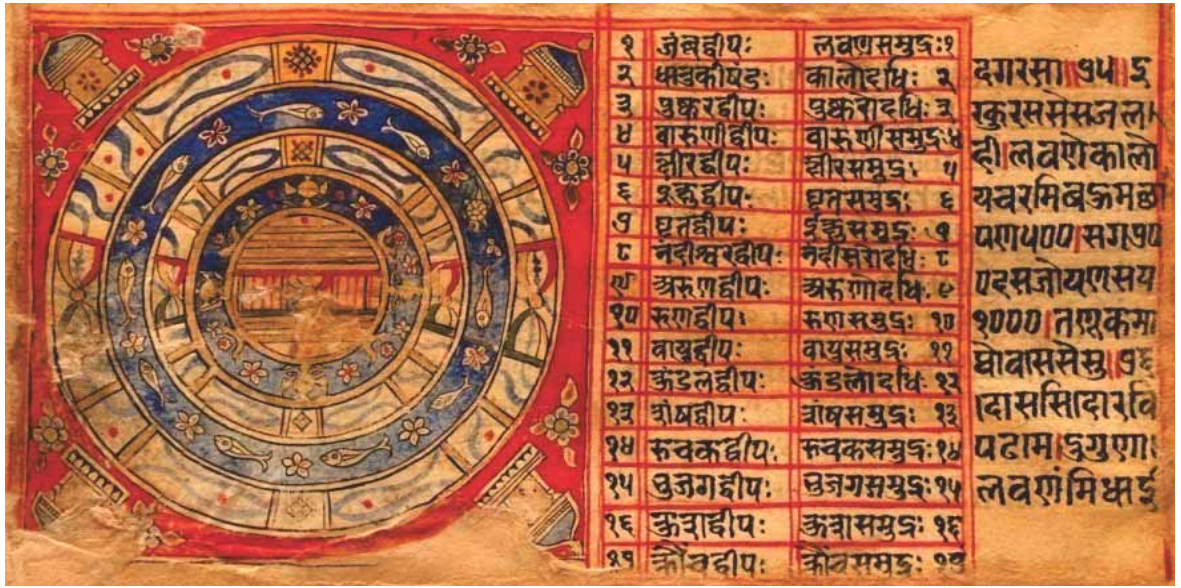 १ जंबूद्वीपः लवणसमुद्रः१
२ धातुकीषंडः कालोदधिः २
३ पुष्करद्वीपः पुष्करोदधिः ३
४ वारुणीद्वीपः वारुणीसमुद्रः४
५ क्षीरद्वीपः क्षीरसमुद्रः ५
६ इक्षुद्वीपः घृतसमुद्रः ६
७ घृतद्वीपः इक्षुसमुद्रः ७
८ नंदीश्वरद्वीपः नंदीसरोदधिः ८
९ अरुणद्वीपः अरुणोदधिः ९
१० रुणद्वीपः रुणसमुद्रः १०
११ वायुद्वीपः वायुसमुद्रः ११
१२ कुंडलद्वीपः कुंडलोदधिः १२
१३ शंषद्वीपः शंषसमुद्रः १३
१४ रुचकद्वीपः रुचकसमुद्रः१४
१५ भुजगद्वीपः भुजगसमुद्रः१५
१६ कुशद्वीपः कुशसमुद्रः १६
१७ क्रौंचद्वीपः क्रौंचसमुद्रः १७
दगरसा॥७५॥इ
रकुरससेसजला।
ही।लवणेकालो
यचरमिबहुमछा
पण५००।सग७०
०दसजोयणसय
१०००।तणुकमा
थोवाससेसु॥७६
।दोससि।दोरवि
पढमे।दुगुणा।
लवणंमिधाई